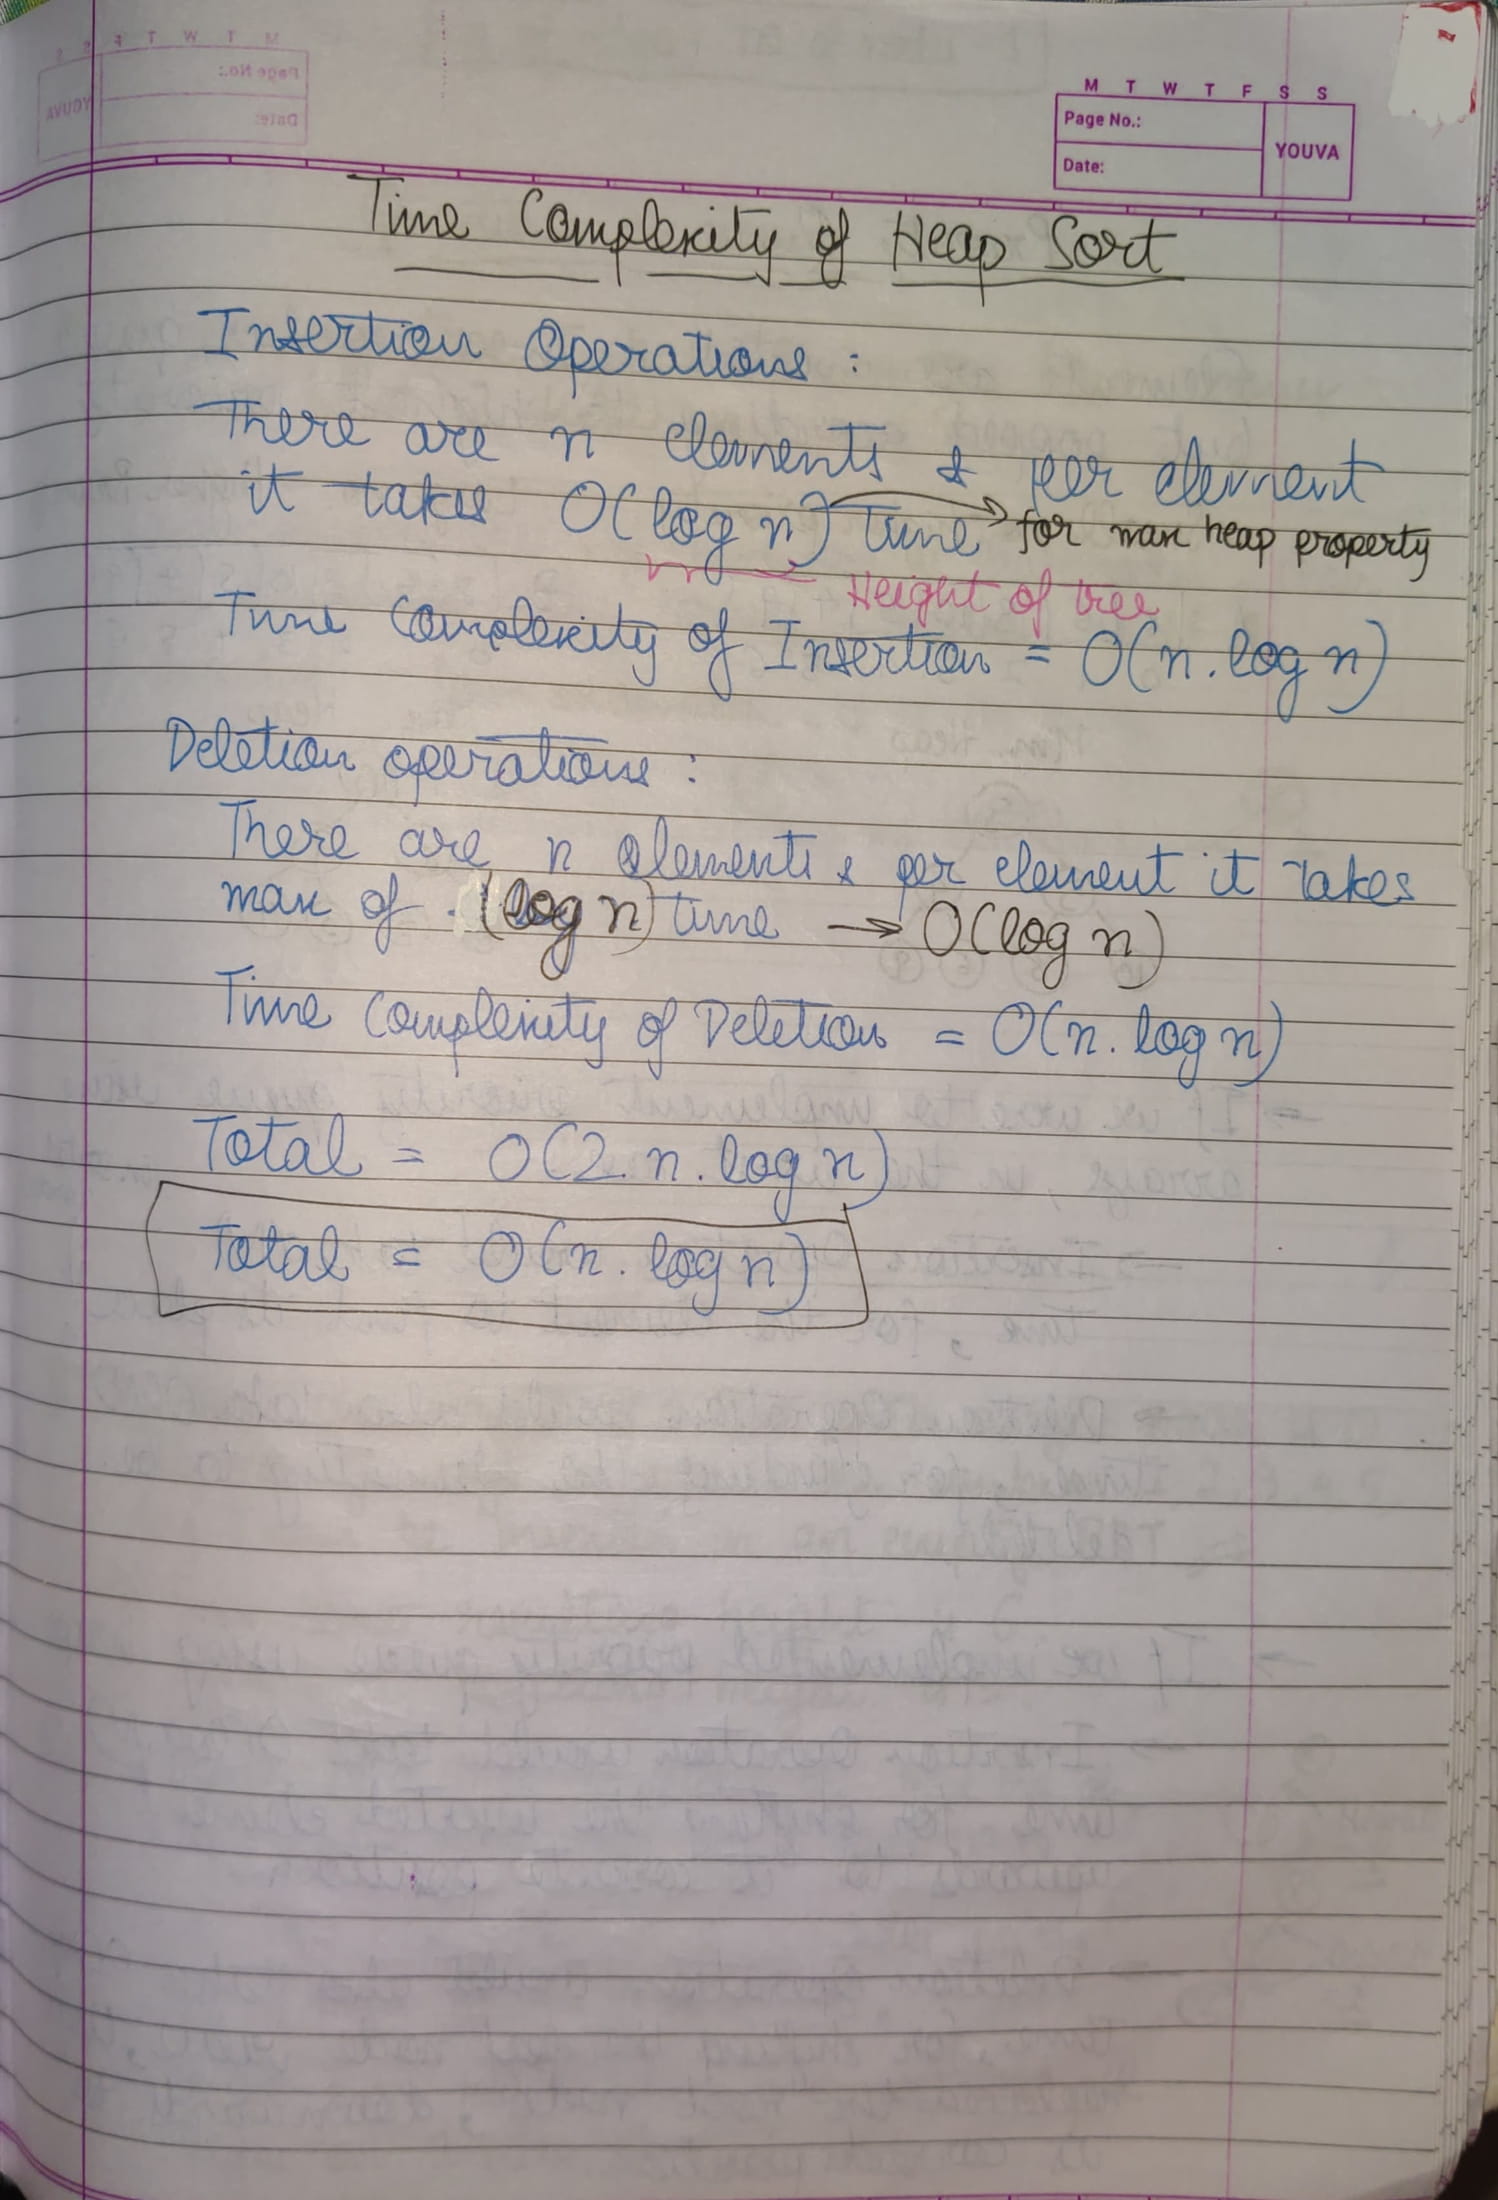 M T W T F S S
Page No.:
Date:
YOUVA
Time Complexity of Heap Sort
Insertion Operations :
There are n elements & per element
it takes O(log n) time → for max heap property
Height of tree
Time Complexity of Insertion = O(n. log n)
Deletion operations :
There are n elements & per element it takes
max of (log n) time → O(log n)
Time Complexity of Deletion = O(n. log n)
Total = O(2. n. log n)
Total = O(n. log n)